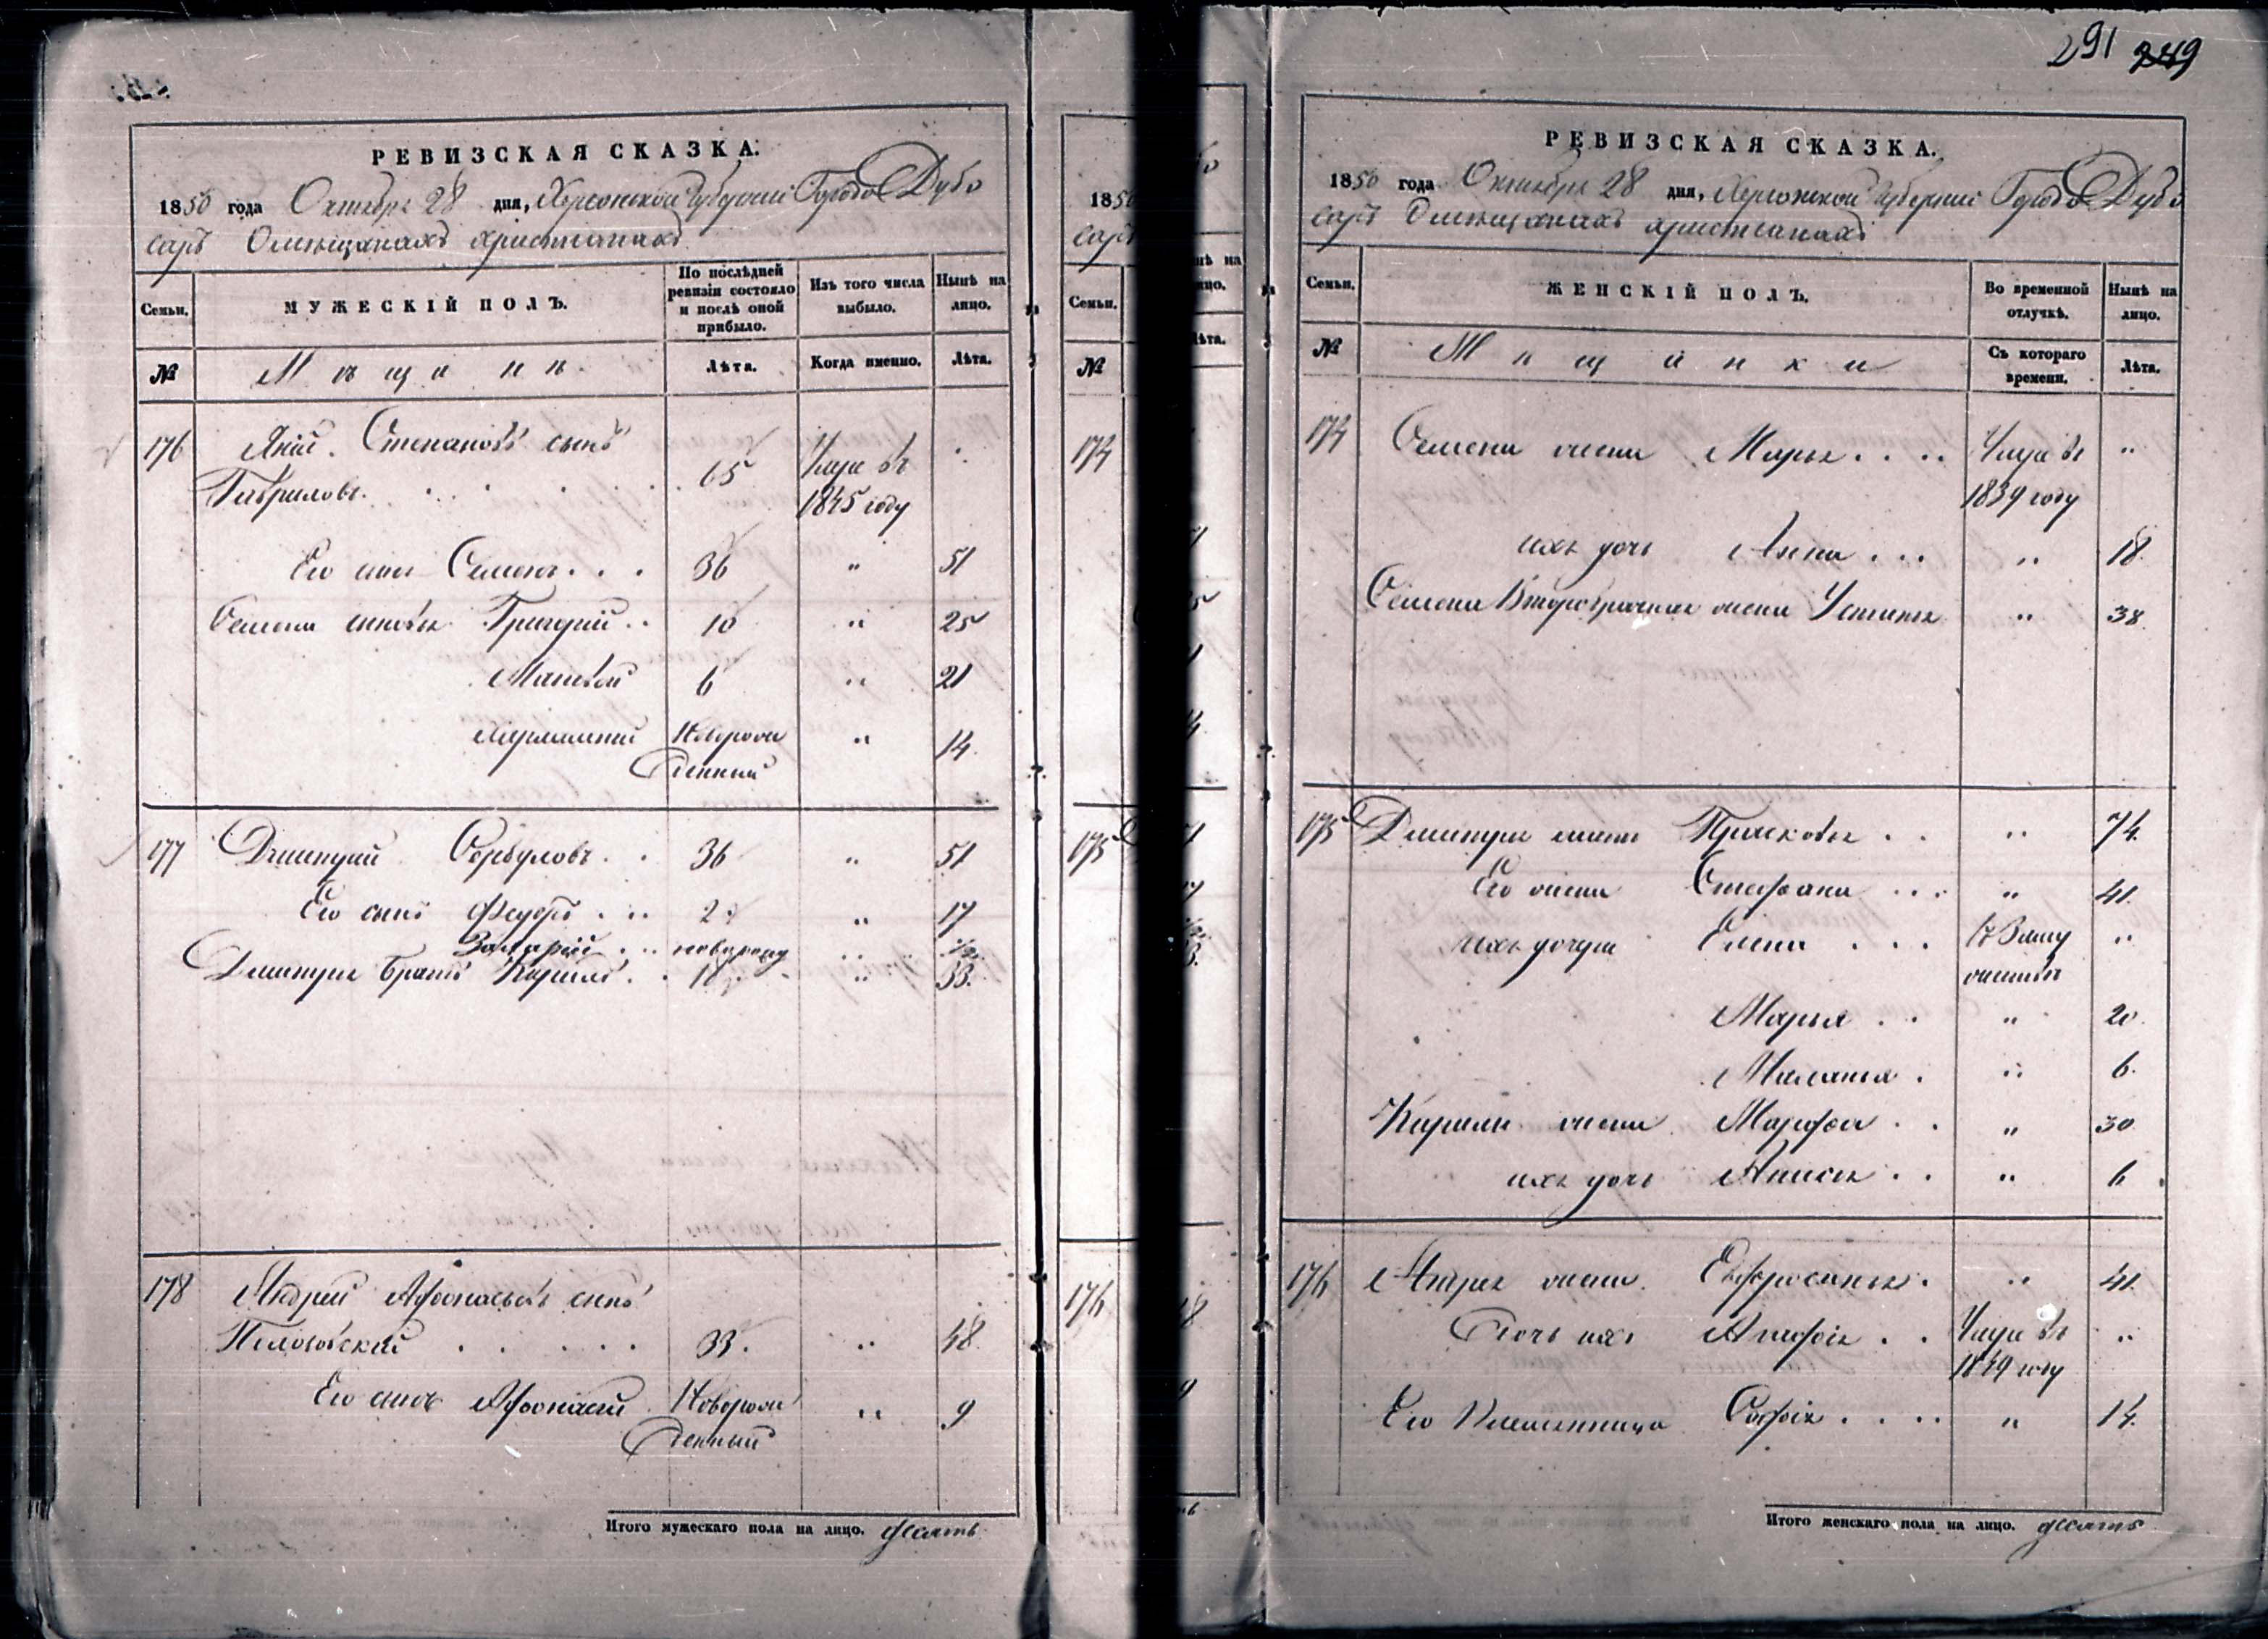 РЕВИЗСКАЯ СКАЗКА.
1850 года Октября 28 дня, Херсонской Губернии Города Дубо
саръ О мещанахъ христианахъ
Семьи.
МУЖЕСКІЙ ПОЛЪ.
По послѣдней ревизіи состояло и послѣ оной прибыло.
Изъ того числа выбыло.
Нынѣ на лицо.
№
Мѣщане
Лѣта.
Когда именно.
Лѣта.
176 Степановъ сынъ
Гавриловъ 65 Умре въ 1845 году
Его сынъ Семенъ 36 " 51
Семена сыновья Григорий 10 " 25
Матвей 6 " 21
Новорожденный " 14
177 Дмитрий 36 " 51
Его сынъ Федоръ 2 " 17
Захарий новорожд " 1/2
Дмитрия братъ Кирилъ 18 " 33.
178 Андрей Афонасьевъ сынъ
33. " 48
Его сынъ Афонасий Новорожденный " 9
Итого мужескаго пола на лицо. десять
1850
саръ
Семьи.
№
174
175
176
291 249
РЕВИЗСКАЯ СКАЗКА.
1850 года Октября 28 дня, Херсонской Губернии Города Дубо
саръ О мещанахъ христианахъ
Семьи.
ЖЕНСКІЙ ПОЛЪ.
Во временной отлучкѣ.
Нынѣ на лицо.
№
Мещанки
Съ котораго времени.
Лѣта.
174 Семена жена Марья Умре въ 1839 году "
ихъ дочь Анна " 18
Семена Второбрачная жена Устинья " 38
175 Дмитрия мать Прасковья " 74.
Его жена Стефана " 41.
ихъ дочери Елена Въ замужестве "
Марья " 20.
Маланья " 6.
Кирила жена Марфа " 30
ихъ дочь Анисья " 6
176 Андрея жена Ефросинья " 41.
Дочь ихъ Умре въ 1849 году "
Его Племянница Софія " 14.
Итого женскаго пола на лицо. десять